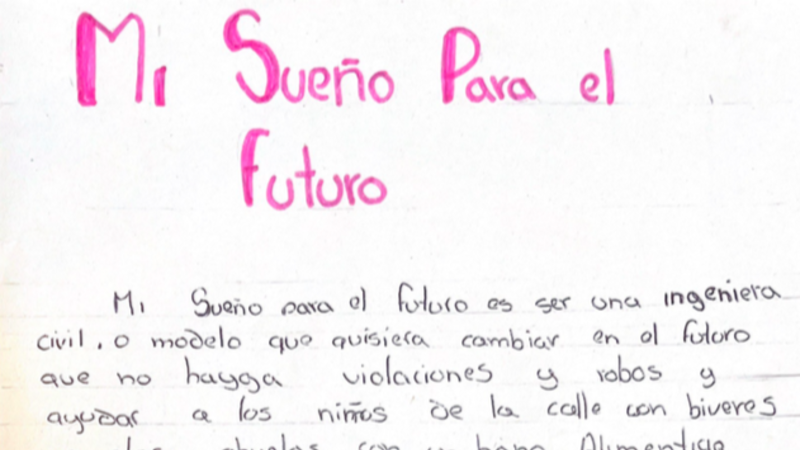 Mi Sueño Para el
Futuro
Mi Sueño para el futuro es ser una ingeniera
civil. o modelo que quisiera cambiar en el futuro
que no hayga violaciones y robos y
ayudar a los niños de la calle con biveres
abuelos con un bono Alimenticio